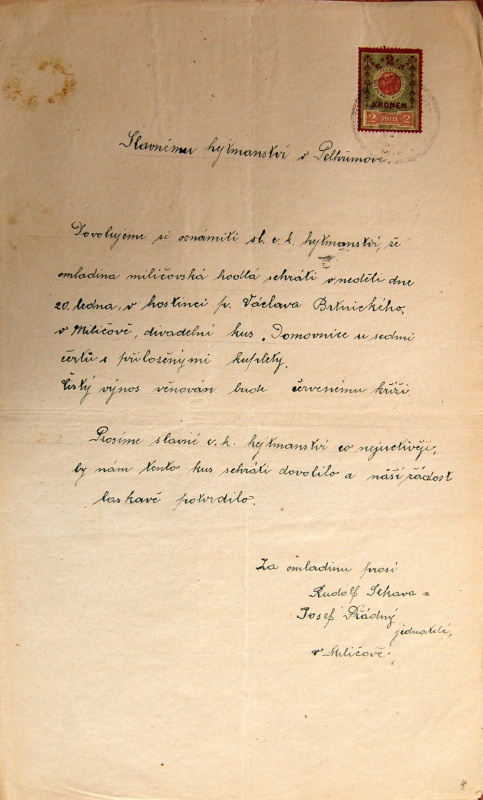 2
KRONEN
2 1910 2
Slavnému hejtmanství v Pelhřimově.
Dovolujeme si oznámiti sl. c. k. hejtmanství, že
omladina miličovská hodlá sehráti v neděli dne
20. ledna, v hostinci p. Václava Brtnického,
v Miličově, divadelní kus „Domovnice u sedmi
čertů s přiloženými kuplety.
Čistý výnos věnován bude červenému kříži.
Prosíme slavné c. k. hejtmanství co nejuctivěji,
by nám tento kus sehráti dovolilo a náší žádost
laskavě potvrdilo.
Za omladinu prosí
Rudolf Schava a
Josef Přádný
jednatelé,
v Miličově.